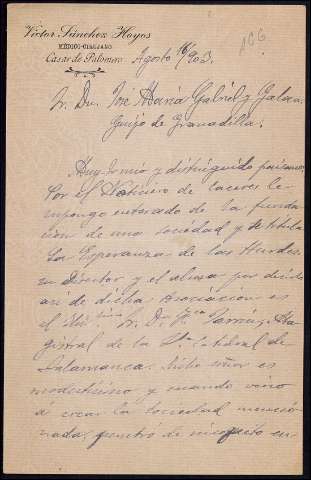 Víctor Sánchez Hoyos
MÉDICO-CIRUJANO
Casar de Palomero
Agosto 16/903.
Sr. Dn. José María Gabriel y Galan
Guijo de Granadilla.
Muy Sr. mio y distinguido paisano:
Por el Noticiero de Caceres le
supongo enterado de la funda
ción de una sociedad q. se titula
La Esperanza de las Hurdes.
su Director y el alma por decirlo
asi de dicha Asociación es
el Sr. Dn. Fco. Jarrin, Ma
gistral de la Sta. Catedral de
Salamanca. Dicho señor es
modestisimo y cuando vino
á crear la Sociedad mencio
nada, de incognito en